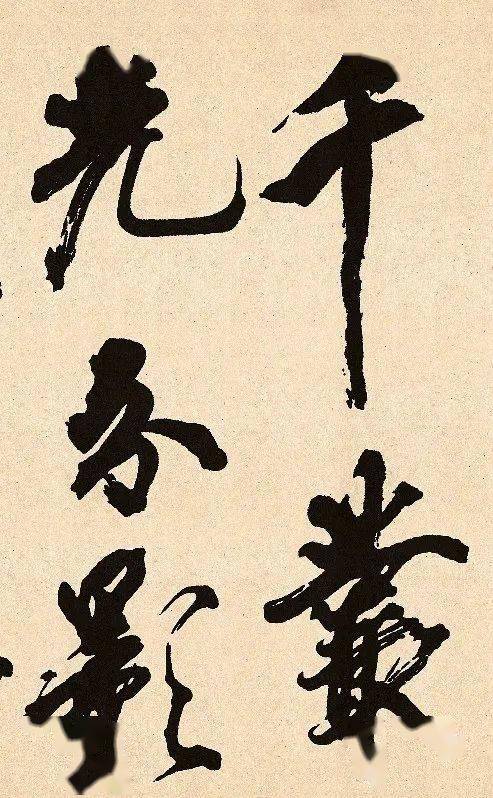 千叢
光分影